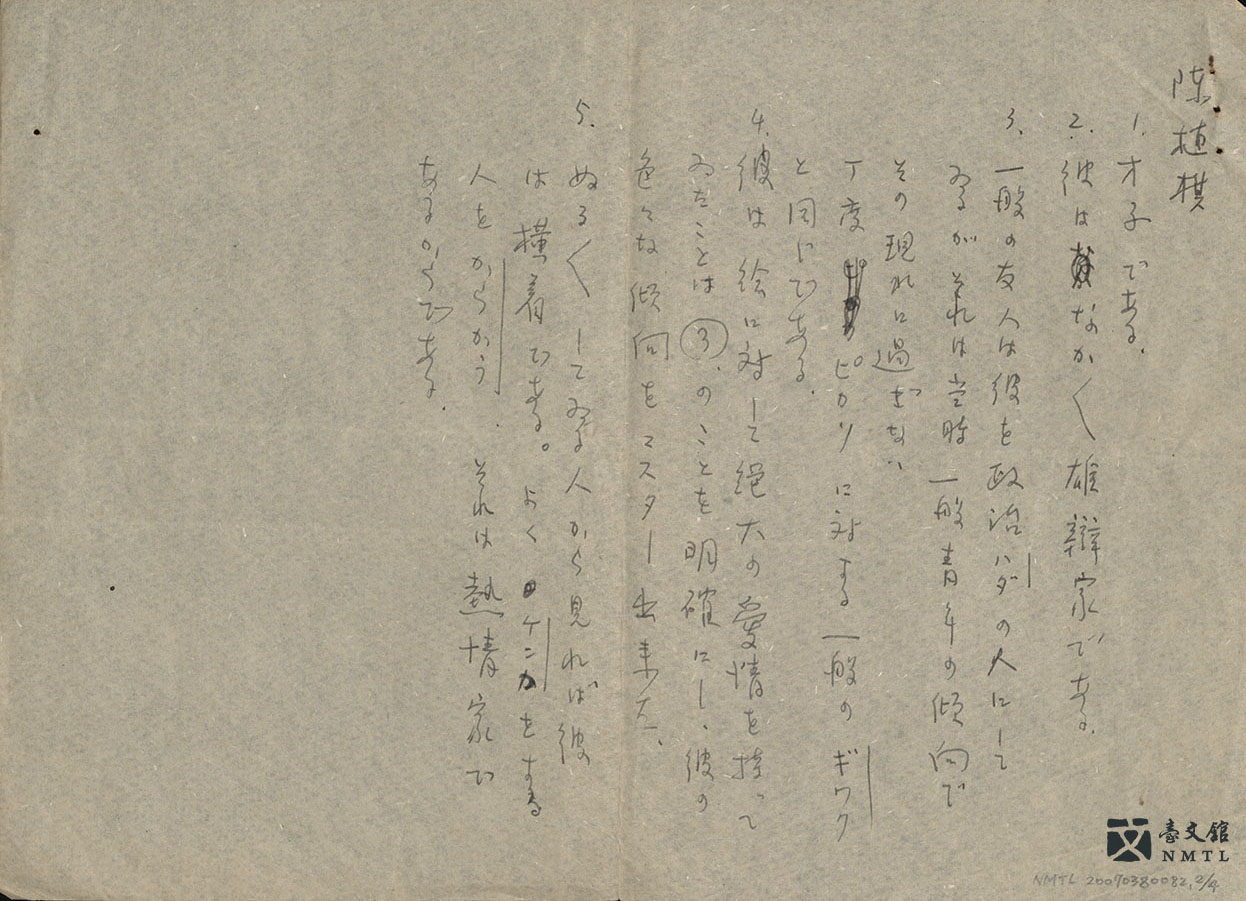 陳植棋
1. 才子である.
2. 彼はなか〱雄辯家である.
3. 一般の友人は彼を政治ハダの人にして
ゐるがそれは当時一般青年の傾向で
その現れに過ぎない
丁度ピカソに対する一般のギワク
と同じである.
4. 彼は绘に対して絕大の愛情を持って
ゐたことは③.のことを明確にし、彼の
色々な傾向をマスター出来た、
5. ぬる〱してゐる人から見れば彼
は横着である。よくケンカをする
人をからかう.それは熱情家で
あるからである.
臺文館
NMTL
NMTL 20070380082, 2/4